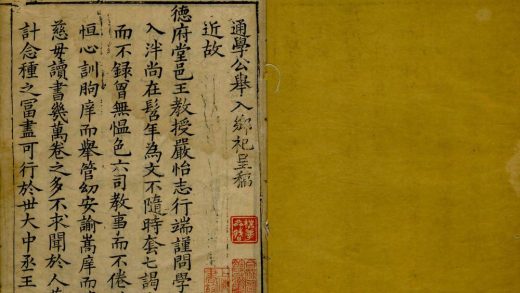 通學公舉入鄉祀呈稿
近故
德府堂邑王教授嚴怡志行端謹問學
入泮尚在髫年為文不隨時套七謁
而不錄曾無慍色六司教事而不倦
恒心訓朐庠而舉管幼安諭嵩庠而
慈毋讀書幾萬卷之多不求聞於人
計念種之冨盡可行於世大中丞王